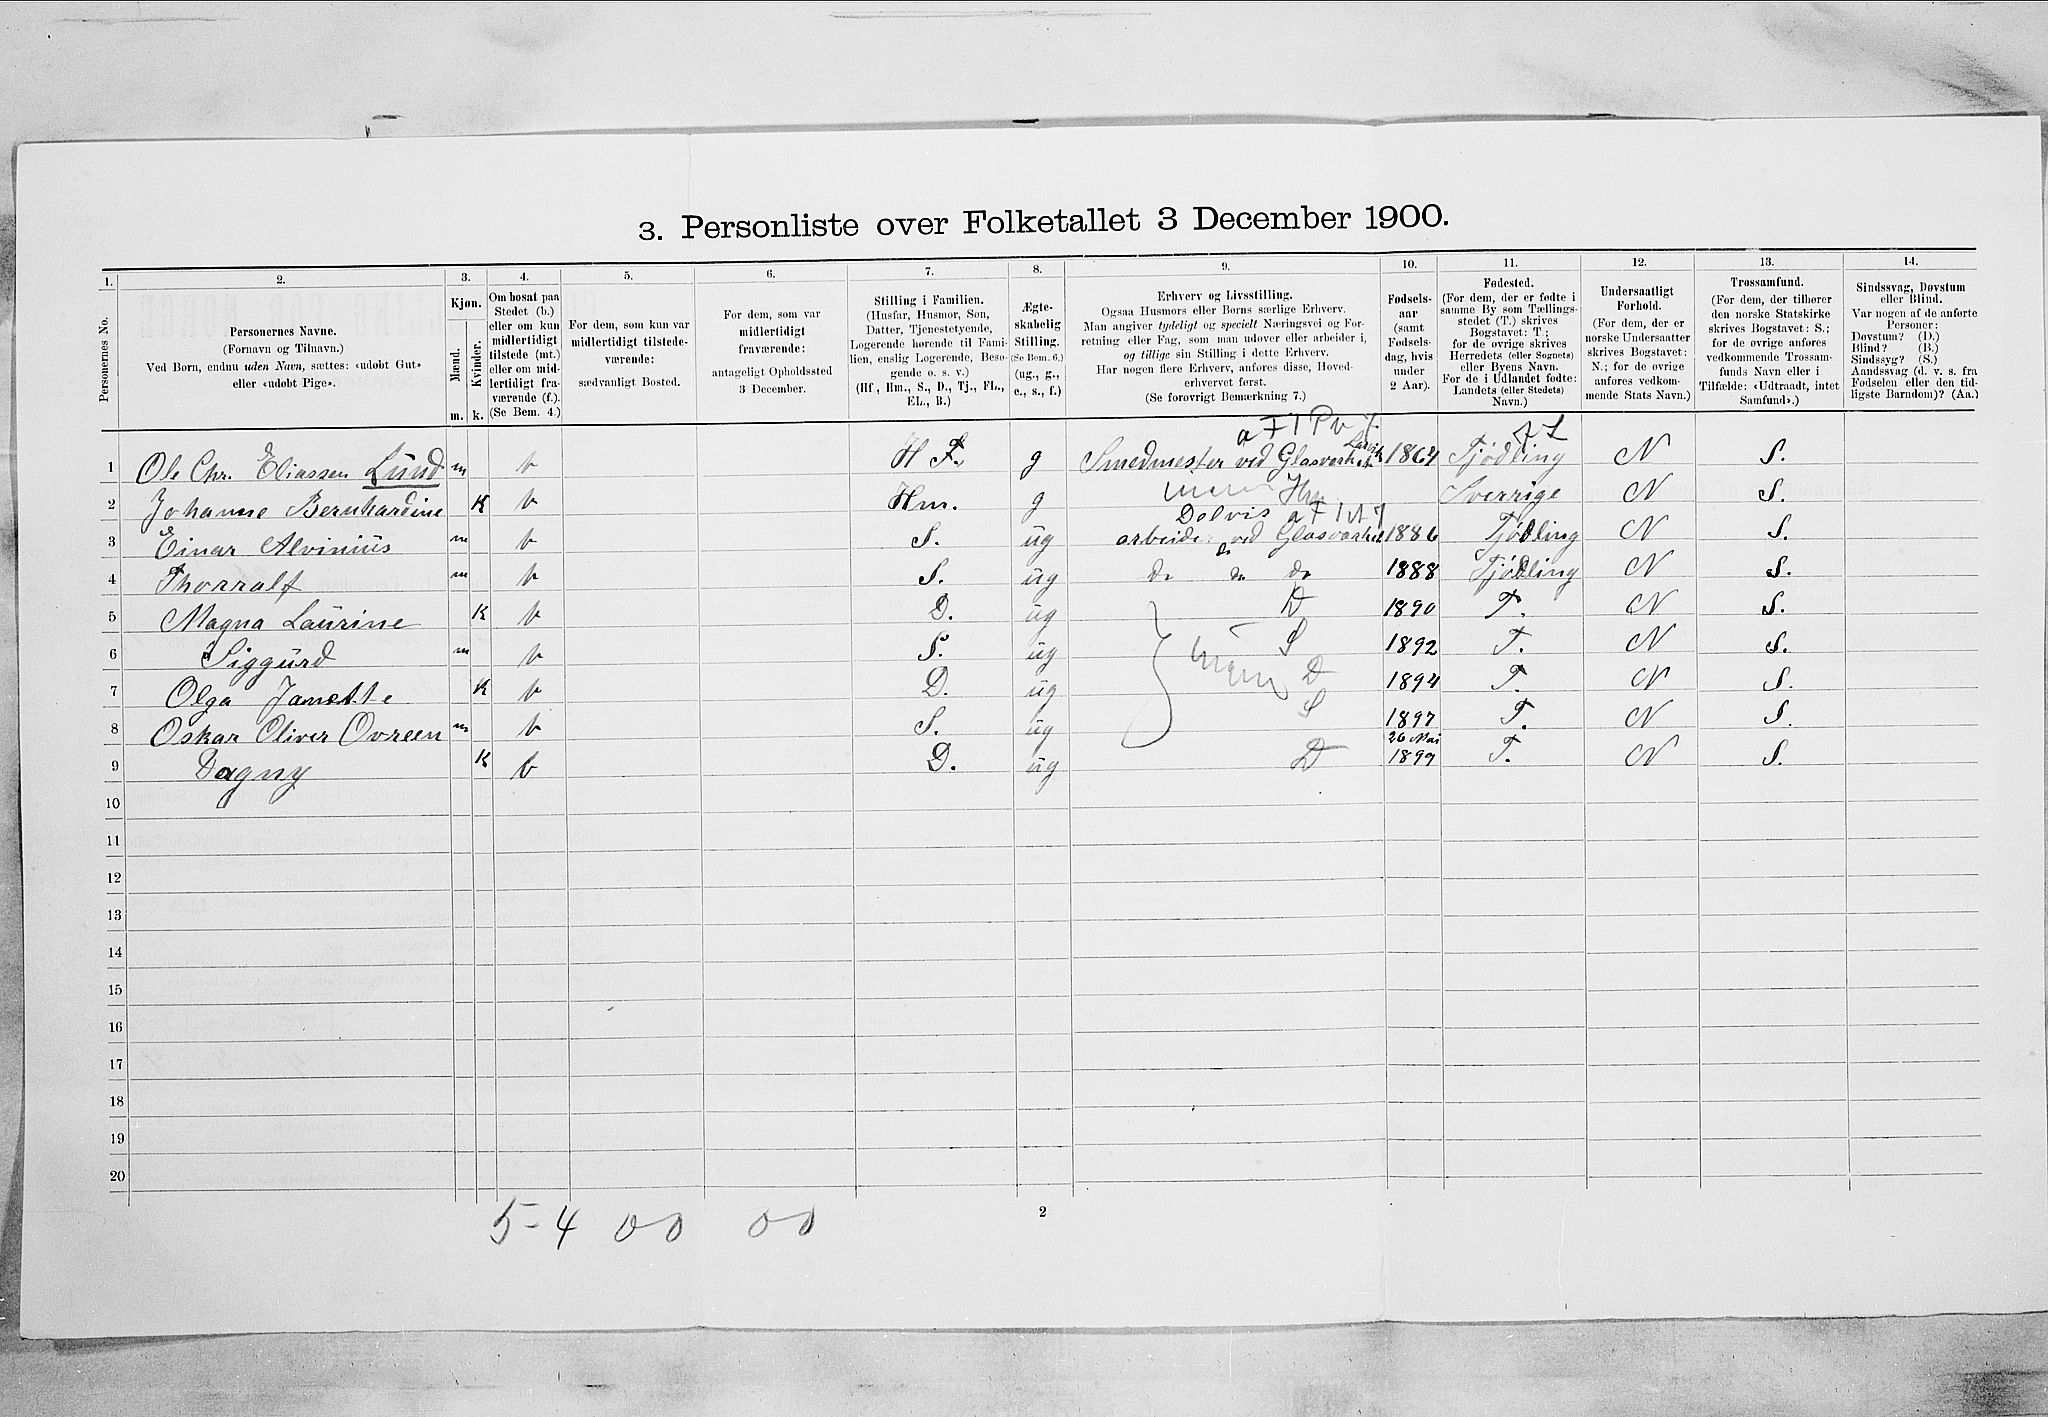 3. Personliste over Folketallet 3 December 1900.
1. 2. 3. 4. 5. 6. 7. 8. 9. 10. 11. 12. 13. 14.
Personernes No.
Personernes Navne.
(Fornavn og Tilnavn.)
Ved Børn, endnu uden Navn, sættes: «udøbt Gut»
eller «udøbt Pige».
Kjøn.
Mænd.
Kvinder.
m. k.
Om bosat paa
Stedet (b.)
eller om kun
midlertidigt
tilstede (mt.)
eller om mid-
lertidigt fra-
værende (f.).
(Se Bem. 4.)
For dem, som kun var
midlertidigt tilstede-
værende:
sædvanligt Bosted.
For dem, som var
midlertidigt
fraværende:
antageligt Opholdssted
3 December.
Stilling i Familien.
(Husfar, Husmor, Søn,
Datter, Tjenestetyende,
Logerende hørende til Fami-
lien, enslig Logerende, Besø-
gende o. s. v.)
(Hf., Hm., S., D., Tj., FL.,
EL., B.)
Ægte-
skabelig
Stilling.
(Se Bem. 6.)
(ug., g.,
e., s., f.)
Erhverv og Livsstilling.
Ogsaa Husmors eller Børns særlige Erhverv.
Man angiver tydeligt og specielt Næringsvei og For-
retning eller Fag, som man udøver eller arbeider i,
og tillige sin Stilling i dette Erhverv.
Har nogen flere Erhverv, anføres disse, Hoved-
erhvervet først.
(Se forøvrigt Bemærkning 7.)
Fødsels-
aar
(samt
Fødsels-
dag, hvis
under
2 Aar).
Fødested.
(For dem, der er fødte i
samme By som Tællings-
stedet (T.) skrives
Bogstavet: T.;
for de øvrige skrives
Herredets (eller Sognets)
eller Byens Navn.
For de i Udlandet fødte:
Landets (eller Stedets)
Navn.)
Undersaatligt
Forhold.
(For dem, der er
norske Undersaatter
skrives Bogstavet:
N.; for de øvrige
anføres vedkom-
mende Stats Navn.)
Trossamfund.
(For dem, der tilhører
den norske Statskirke
skrives Bogstavet: S.;
for de øvrige anføres
vedkommende Trossam-
funds Navn eller i
Tilfælde: «Udtraadt, intet
Samfund».)
Sindssvag, Døvstum
eller Blind.
Var nogen af de anførte
Personer:
Døvstum? (D.)
Blind? (B.)
Sindssyg? (S.)
Aandssvag (d. v. s. fra
Fødselen eller den tid-
ligste Barndom)? (Aa.)
1 Ole Chr. Eliassen Lund m b H F. g Smedmester ved Glasværket Larvik 1864 Tjødling N S.
2 Johanne Bernhardine K b Hm. g Hm Sverrige N S.
Dolvis
3 Einar Alvinius m b S. ug arbeider ved Glasværket 1886 Tjødling N S.
4 Thorralf m b S. ug do do do 1888 Tjødling N S.
5 Magna Laurine K b D. ug D 1890 T. N S.
6 Siggurd m b S. ug S 1892 T. N S.
7 Olga Janette K b D. ug D 1894 T. N S.
8 Oskar Oliver Ovreen m b S. ug S 1897 T. N S.
9 Dagny K b D. ug D 26 Mai 1899 T. N S.
10
11
12
13
14
15
16
17
18
19
20
5-4 00 00
2